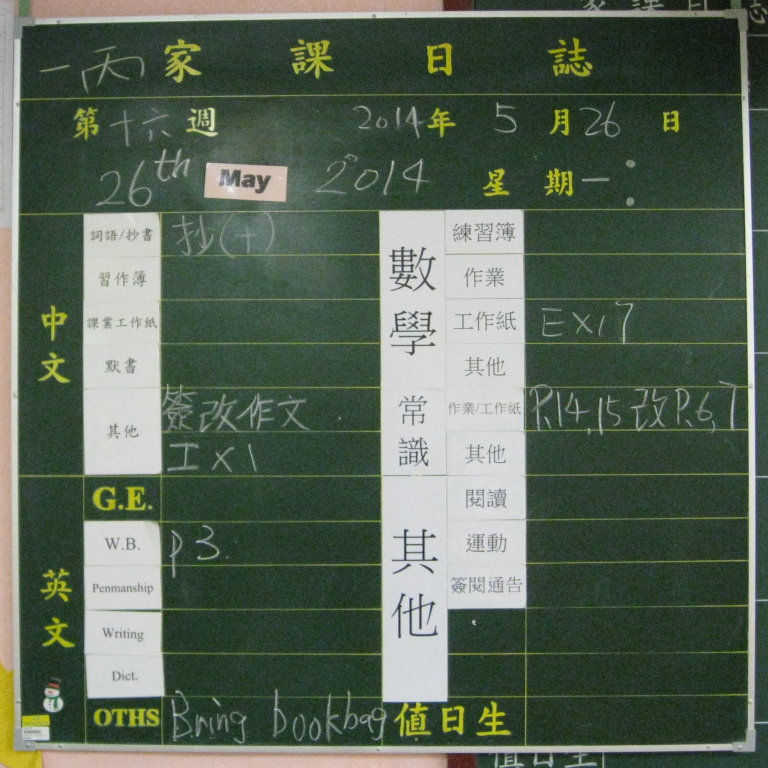 一丙 家課日誌
第十六週 2014年 5月26日
26th May 2014 星期一
中文
詞語/抄書 抄(十)
習作簿
課業工作紙
默書
其他 簽改作文
工X1
英文
G.E.
W.B. p3.
Penmanship
Writing
Dict.
OTHS Bring bookbag
數學
練習簿
作業
工作紙 EX17
其他
常識
作業/工作紙 P.14,15 改P.6,7
其他
其他
閱讀
運動
簽閱通告
值日生
值日生